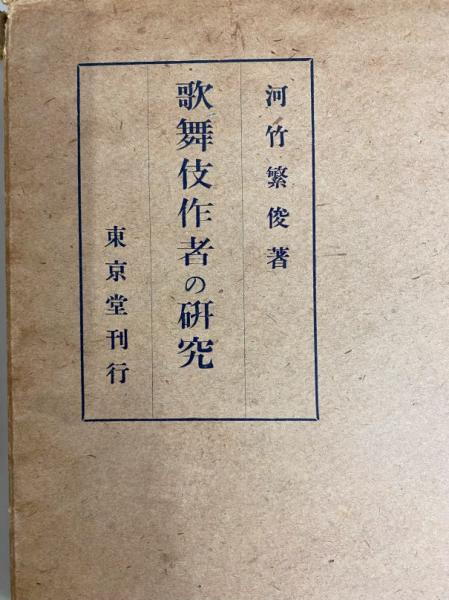 河竹繁俊著
歌舞伎作者の研究
東京堂刊行